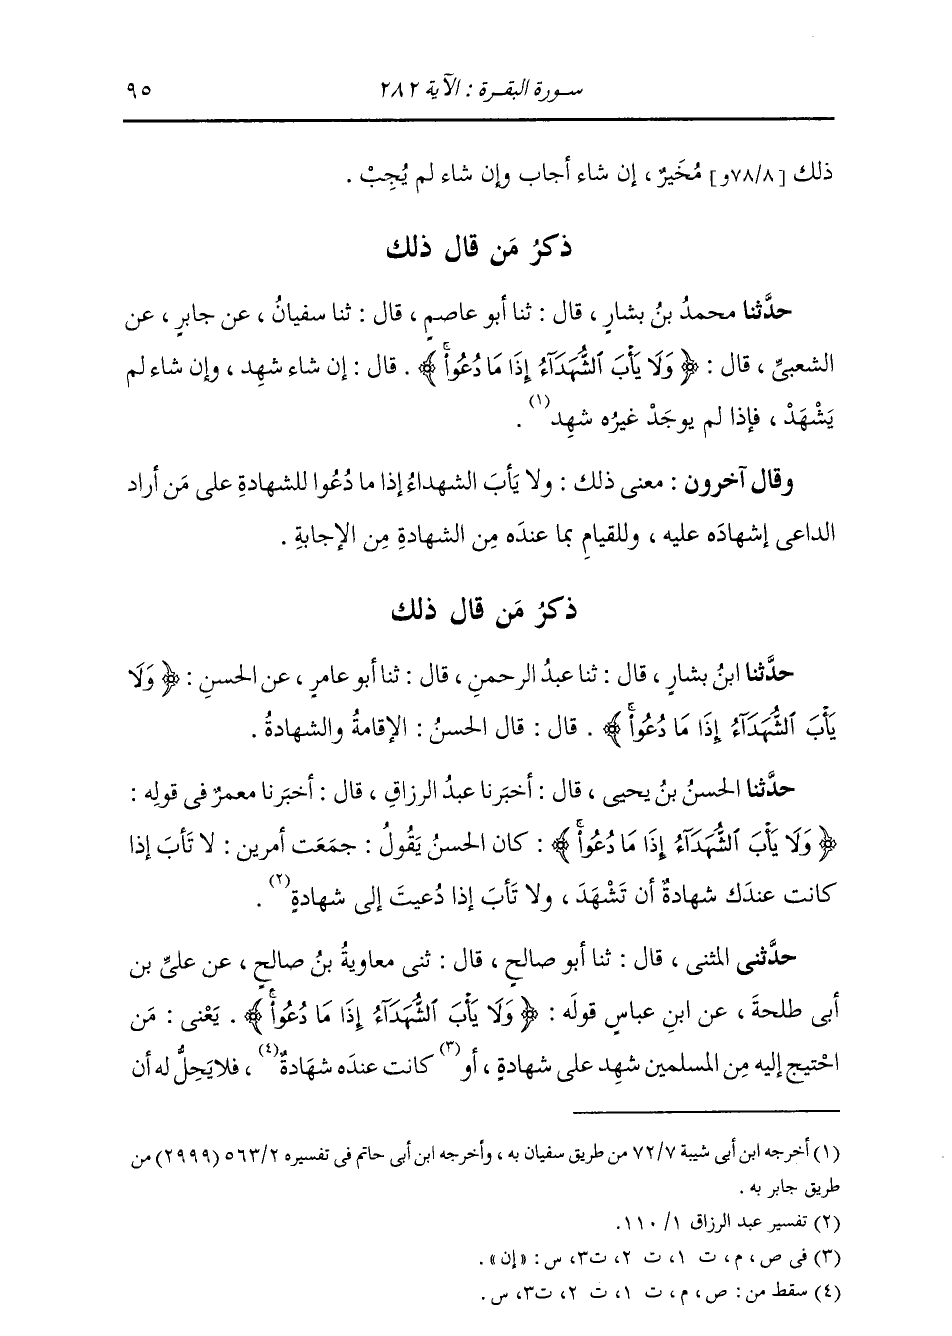 سورة البقرة : الآية ٢٨٢ ٩٥
ذلك [٧٨/٨و] مُخَيرٌ ، إن شاء أجاب وإن شاء لم يُجِبْ .
ذكرُ مَن قال ذلك
حدَّثنا محمدُ بنُ بشارٍ ، قال : ثنا أبو عاصمٍ ، قال : ثنا سفيانُ ، عن جابرٍ ، عن
الشعبىِّ ، قال : ﴿ وَلَا يَأْبَ ٱلشُّهَدَآءُ إِذَا مَا دُعُوا۟ۚ ﴾ . قال : إن شاء شهِد ، وإن شاء لم
يَشْهَدْ ، فإذا لم يوجَدْ غيرُه شهِد(١) .
وقال آخرون : معنى ذلك : ولا يَأبَ الشهداءُ إذا ما دُعُوا للشهادةِ على مَن أراد
الداعى إشهادَه عليه ، وللقيامِ بما عندَه مِن الشهادةِ مِن الإجابةِ .
ذكرُ مَن قال ذلك
حدَّثنا ابنُ بشارٍ ، قال : ثنا عبدُ الرحمنِ ، قال : ثنا أبو عامرٍ ، عن الحسنِ : ﴿ وَلَا
يَأْبَ ٱلشُّهَدَآءُ إِذَا مَا دُعُوا۟ۚ ﴾ . قال : قال الحسنُ : الإقامةُ والشهادةُ .
حدَّثنا الحسنُ بنُ يحيى ، قال : أخبَرنا عبدُ الرزاقِ ، قال : أخبَرنا معمرٌ فى قولِه :
﴿ وَلَا يَأْبَ ٱلشُّهَدَآءُ إِذَا مَا دُعُوا۟ۚ ﴾ : كان الحسنُ يَقُولُ : جمَعَت أمرين : لا تَأبَ إذا
كانت عندَك شهادةٌ أن تَشْهَدَ ، ولا تَأبَ إذا دُعيتَ إلى شهادةٍ(٢) .
حدَّثنى المثنى ، قال : ثنا أبو صالحٍ ، قال : ثنى معاويةُ بنُ صالحٍ ، عن علىِّ بن
أبى طلحةَ ، عن ابنِ عباسٍ قولَه : ﴿ وَلَا يَأْبَ ٱلشُّهَدَآءُ إِذَا مَا دُعُوا۟ۚ ﴾ . يَعْنى : مَن
احْتيج إليه مِن المسلمين شهِد على شهادةٍ ، أو(٣) كانت عندَه شهَادةٌ(٤) ، فلا يَحِلُّ له أن
(١) أخرجه ابن أبى شيبة ٧٢/٧ من طريق سفيان به ، وأخرجه ابن أبى حاتم فى تفسيره ٥٦٣/٢ (٢٩٩٩) من
طريق جابر به .
(٢) تفسير عبد الرزاق ١/ ١١٠.
(٣) فى ص ، م ، ت ١، ت ٢، ت٣، س : «إن» .
(٤) سقط من : ص ، م ، ت ١، ت ٢، ت٣، س .